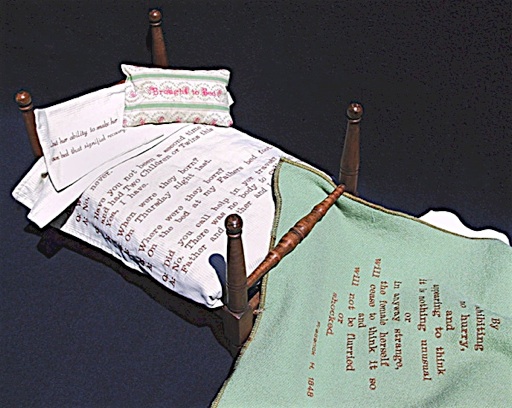 Brought to Bed
her ability to make her
bed that signified
never.
Have you not been a second time
and had Two Children or Twins this
Yes, I have.
When were they born?
On Thursday night last.
Where were they born?
On the bed at my Fathers
Did you call help in you
No. There was no body to
Father and
By
exhibiting
no hurry,
and
appearing to think
it is nothing unusual
or
in anyway strange,
the female herself
will cease to think it so
and
will not be flurried
or
shocked
M. 1848